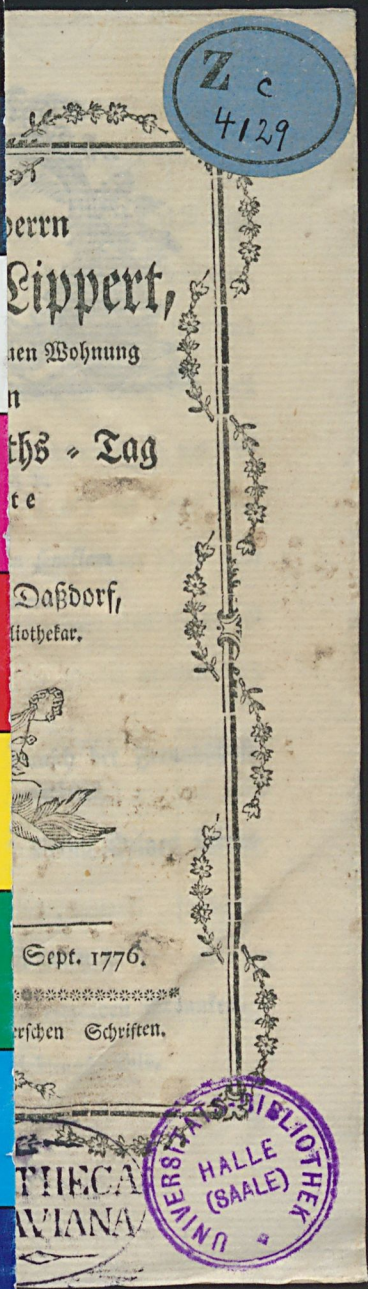 Z c
4129
herrn
Lippert,
nen Wohnung
n
ths - Tag
te
Daßdorf,
liothekar.
Sept. 1776.
erschen Schriften.
THECA
AVIANA
UNIVERSITÄTS-BIBLIOTHEK
HALLE
(SAALE)